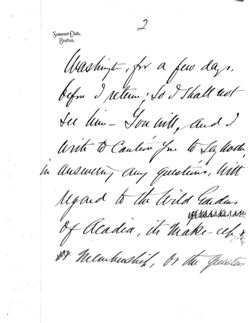 2
Somerset Club,
Boston.
Washington, for a few days,
before I return; so I shall not
see him - You will, and I
write to caution you to say nothing
in answering any questions, with
regard to the Wild Gardens
of Acadia, its make-up &
Membership, or the